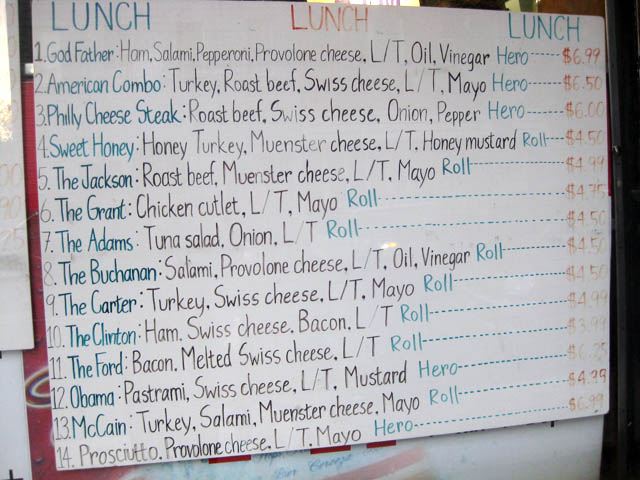 LUNCH LUNCH LUNCH
1. God Father: Ham, Salami, Pepperoni, Provolone cheese, L/T, Oil, Vinegar Hero------$6.99
2. American Combo: Turkey, Roast beef, Swiss cheese, L/T, Mayo Hero------$6.50
3. Philly Cheese Steak: Roast beef, Swiss cheese, Onion, Pepper Hero------$6.00
4. Sweet Honey: Honey Turkey, Muenster cheese, L/T. Honey mustard Roll------$4.50
5. The Jackson: Roast beef, Muenster cheese, L/T, Mayo Roll------$4.99
6. The Grant: Chicken cutlet, L/T, Mayo Roll------$4.75
7. The Adams: Tuna salad, Onion, L/T Roll------$4.50
8. The Buchanan: Salami, Provolone cheese, L/T, Oil, Vinegar Roll------$4.50
9. The Carter: Turkey, Swiss cheese, L/T, Mayo Roll------$4.50
10. The Clinton: Ham, Swiss cheese, Bacon, L/T Roll------$4.99
11. The Ford: Bacon, Melted Swiss cheese, L/T Roll------$3.99
12. Obama: Pastrami, Swiss cheese, L/T, Mustard Hero------$6.25
13. McCain: Turkey, Salami, Muenster cheese, Mayo Roll------$4.99
14. Prosciutto, Provolone cheese, L/T, Mayo Hero------$6.99